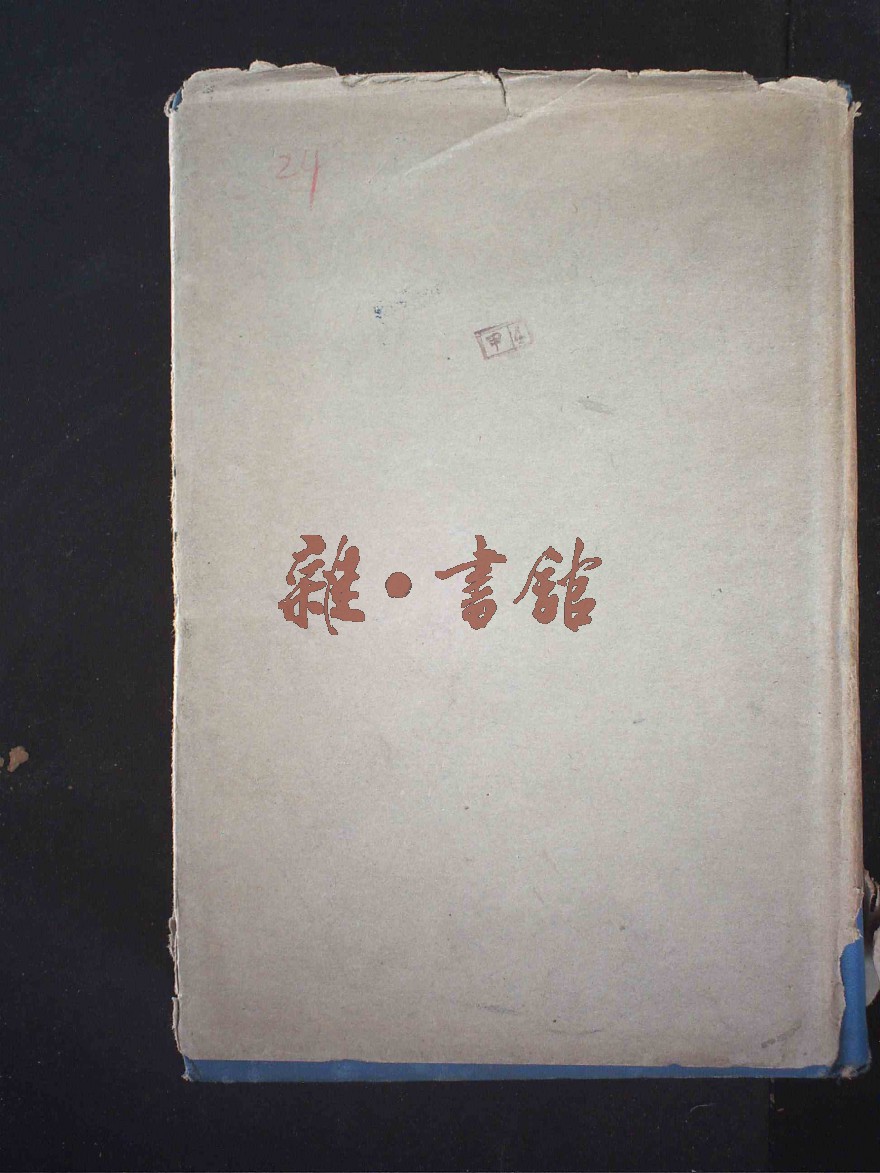 24
甲 4
雜·書館